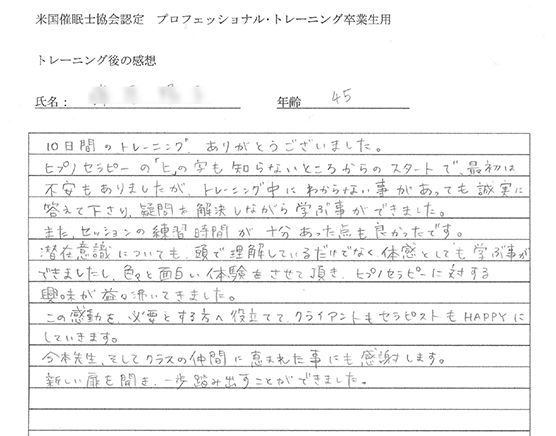 米国催眠士協会認定　プロフェッショナル・トレーニング卒業生用
トレーニング後の感想
氏名：
年齢 45
10日間のトレーニング ありがとうございました。
ヒプノセラピーの「ヒ」の字も知らないところからのスタートで、最初は
不安もありましたが、トレーニング中にわからない事があっても誠実に
答えて下さり、疑問を解決しながら学ぶ事ができました。
また、セッションの練習時間が十分あった点も良かったです。
潜在意識についても、頭で理解しているだけでなく体感としても学ぶ事が
できましたし、色々と面白い体験をさせて頂き、ヒプノセラピーに対する
興味が益々沸いてきました。
この感動を、必要とする方へ役立てて、クライアントもセラピストもHAPPYに
していきます。
今本先生、そしてクラスの仲間に恵まれた事にも感謝します。
新しい扉を開き、一歩踏み出すことができました。